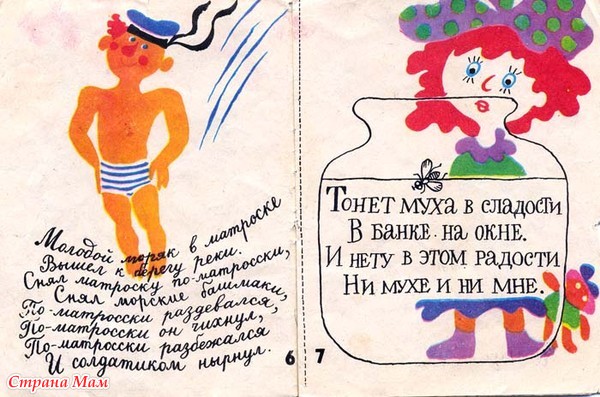 Молодой моряк в матроске
Вышел к берегу реки.
Снял матроску по-матросски,
Снял морские башмаки,
По-матросски раздевался,
По-матросски он чихнул,
По-матросски разбежался
И солдатиком нырнул.
6
7
Тонет муха в сладости
В банке на окне.
И нету в этом радости
Ни мухе и ни мне.
Страна Мам